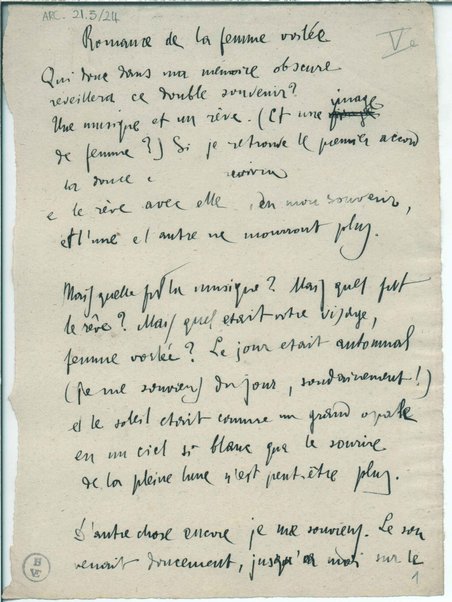 ARC. 21.5/24
Romance de la femme voilée
Ve
Qui donc dans ma mémoire obscure
reveillera ce double souvenir?
Une musique et un rêve. (Et une image
de femme?) Si je retrouve le premier accord
la douce
e le rêve avec elle, en mon souvenir,
et l'une et l'autre ne mourront plus.
Mais quelle fut la musique? Mais quel fut
le rêve? Mais quel etait votre visage,
femme voilée? Le jour etait automnal
(je me souviens du jour, soudainement!)
et le soleil etait comme un grand opale
en un ciel si blanc que le sourire
de la pleine lune n'est peut-être plus.
D'autre chose encore je me souviens. Le son
venait doucement, jusqu'a moi sur le
1